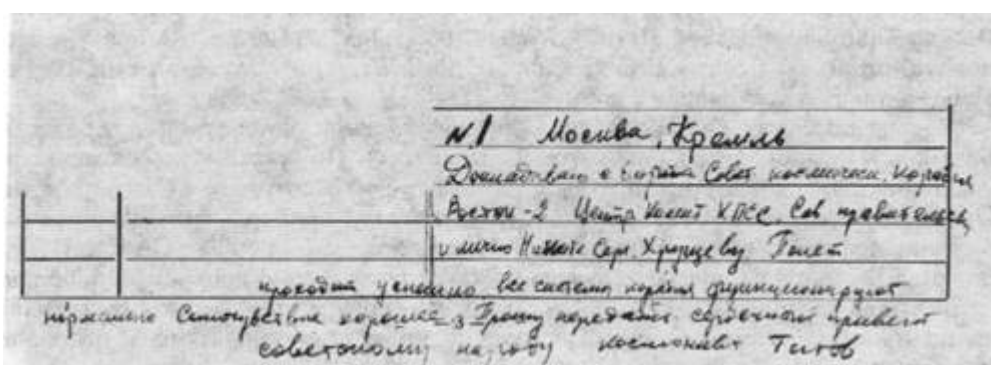 N1 Москва, Кремль
Докладываю с борта Совет. космическ. корабля
Восток-2 Центр. Комит КПСС, Сов правительств
и лично Никите Серг. Хрущеву. Полет
проходит успешно все системы корабля функционируют
нормально Самочувствие хорошее Прошу передайте сердечный привет
советскому народу космонавт Титов